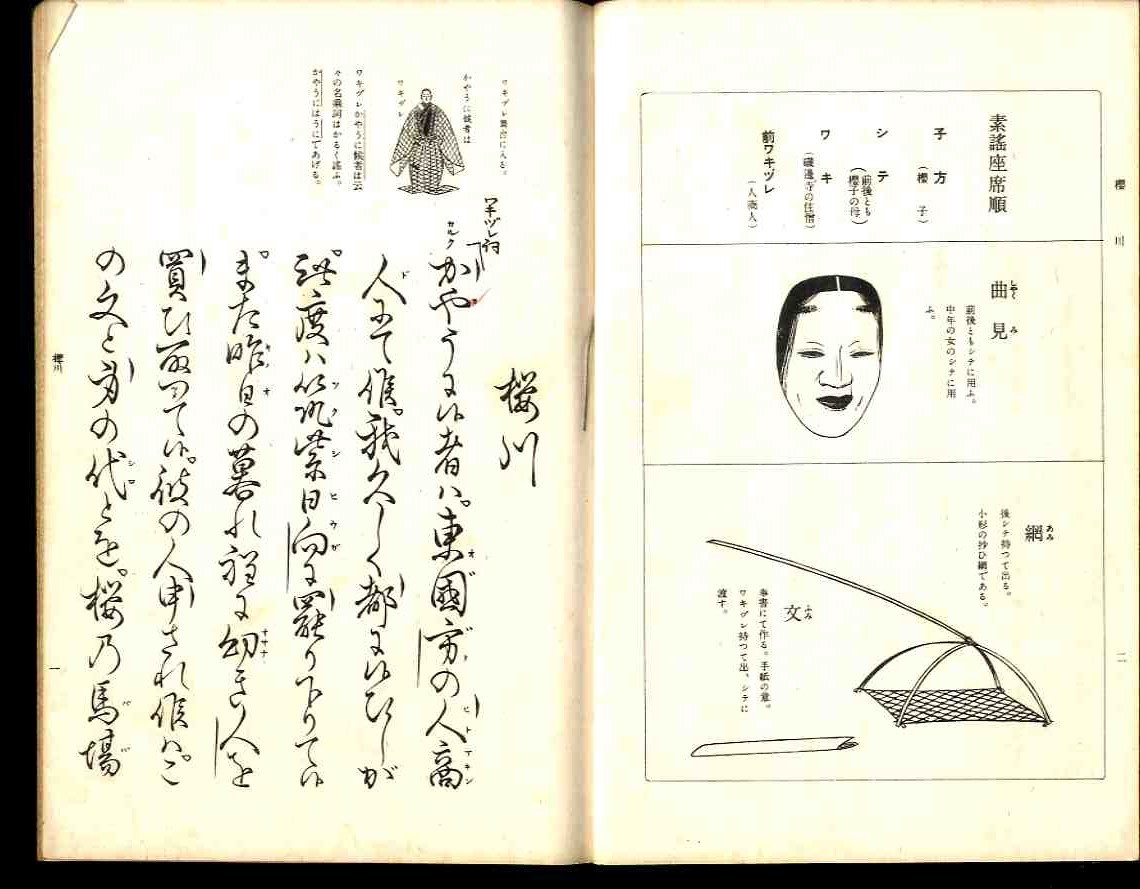 櫻川
二
素謠座席順
子方
(櫻子)
シテ
(前後とも
櫻子の母)
ワキ
(磯邊寺の住僧)
前ワキヅレ
(人商人)
曲見
しやくみ
前後ともシテに用ふ。
中年の女のシテに用
ふ。
網
あみ
後シテ持つて出る。
小形の抄ひ網である。
文
ふみ
奉書にて作る。手紙の意。
ワキヅレ持つて出、シテに
渡す。
ワキヅレ舞台に入る。
かやうに候者は
ワキヅレ
ワキヅレかやうに候者は云
々の名乘詞はかるく謠ふ。
かやうにはうにてあげる。
桜川
ワキヅレ詞
カルク
かやうに候者ハ。東國方の人商
人にて候。我久しく都に候ひしが
此度ハ筑紫日向に罷り下りて候
また昨日の暮れ程に幼き人を
買ひ取つて候。彼の人申され候ハ。こ
の文と身の代とを。桜乃馬場
櫻川
一